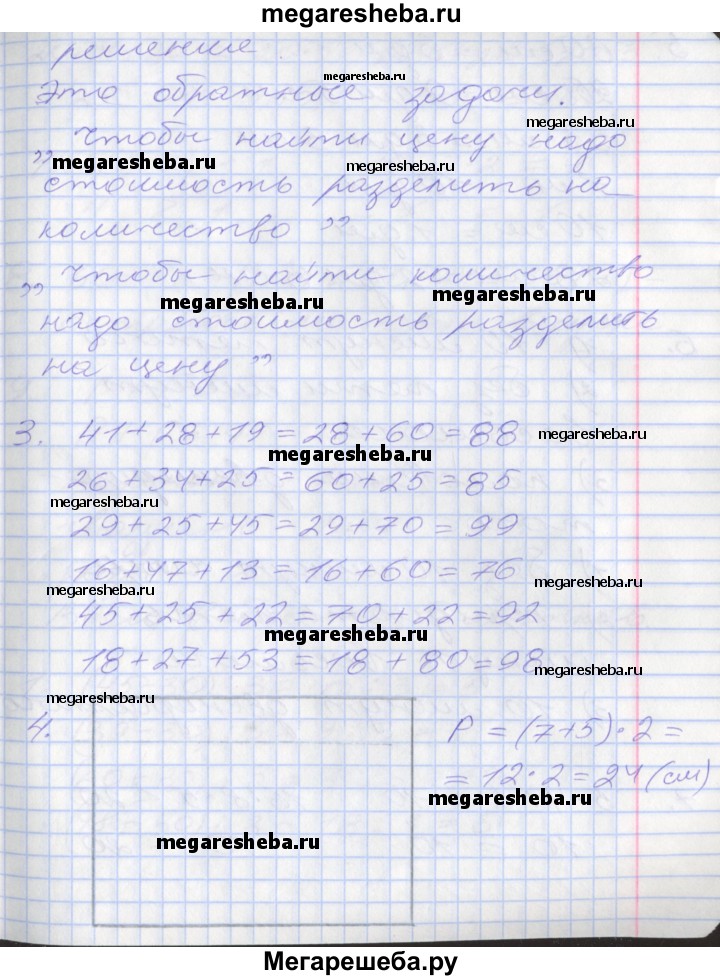 megaresheba.ru
решение.
megaresheba.ru
Это обратные задачи.
megaresheba.ru
„ чтобы найти цену надо
megaresheba.ru
megaresheba.ru
стоимость разделить на
количество ”
„ чтобы найти количество
megaresheba.ru
megaresheba.ru
надо стоимость разделить
на цену ”
3. 41+28+19=28+60=88
megaresheba.ru
megaresheba.ru
26+34+25=60+25=85
megaresheba.ru
29+25+45=29+70=99
16+47+13=16+60=76
megaresheba.ru
megaresheba.ru
45+25+22=70+22=92
megaresheba.ru
18+27+53=18+80=98
megaresheba.ru
megaresheba.ru
4. P=(7+5)·2=
=12·2=24(см)
megaresheba.ru
megaresheba.ru
Мегарешеба.ру